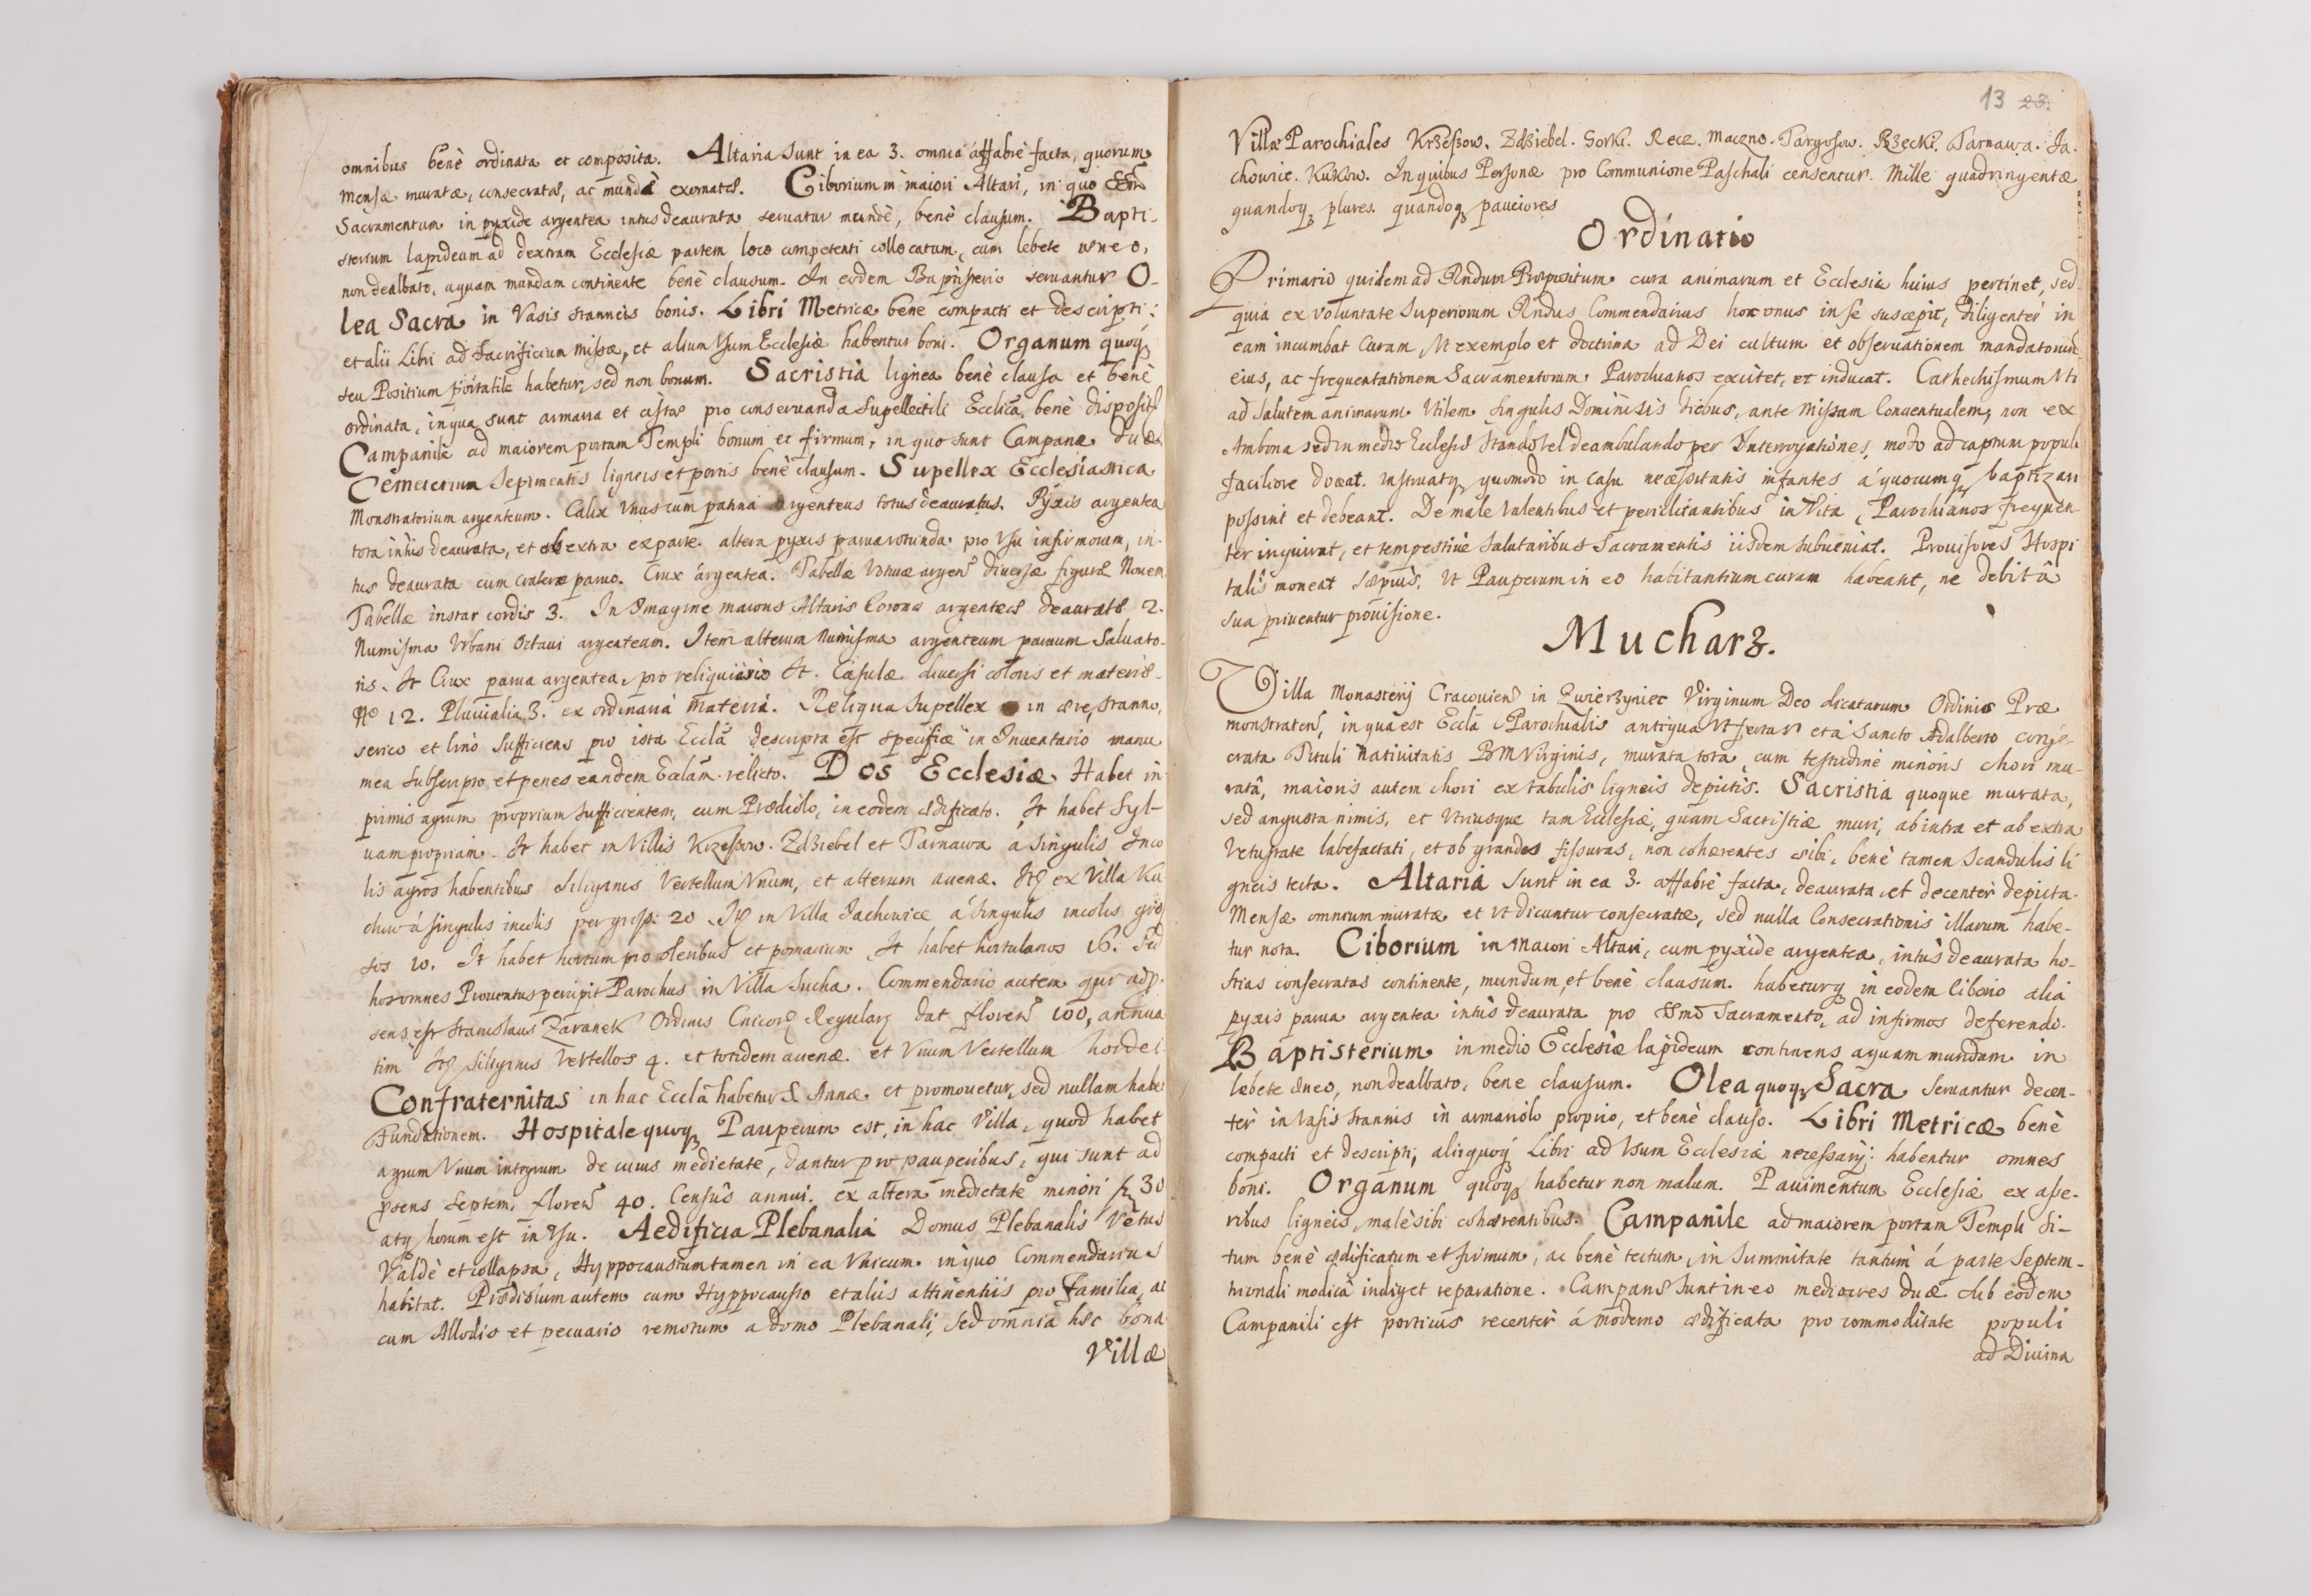 omnibus benè ordinata et composita. Altaria sunt in ea 3. omnia affabrè facta, quorum
Mensæ muratæ, consecratæ, ac mundè exornatæ. Ciborium in maiori Altari, in quo SSmũ
Sacramentum in pyxide argentea intus deaurata seruatur mundè, benè clausum. Bapti-
sterium lapideum ad dextram Ecclesiæ partem loco competenti collocatum, cum lebete æreo,
non dealbato, aquam mundam continente benè clausum. In eodem Baptisterio seruantur O-
lea Sacra in Vasis stanneis bonis. Libri Metricæ bene compacti et descripti:
et alii Libri ad Sacrificium Missæ, et alium Vsum Ecclesiæ habentur boni. Organum quoq3
seu Positium portatile habetur, sed non bonum. Sacristia lignea benè clausa et benè
ordinata, in qua sunt armaria et cistæ pro conseruanda Supellectili Ecclicã, benè dispositæ
Campanile ad maiorem portam Templi bonum et firmum, in quo sunt Campanæ duæ
Cemeterium Sepimentis ligneis et portis benè clausum. Supellex Ecclesiastica
Monstratorium argenteum. Calix Vnus cum patina argenteus totus deauratus. Pyxis argentea
tota intus deaurata, et ab extra ex parte. altera pyxis parua rotunda pro Vsu infirmorum, in-
tus deaurata cum cratere paruo. Crux argentea. Tabellæ Votiuæ argen diuersæ figuræ Nouem
Tabellæ instar cordis 3. In Imagine maioris Altaris Coronæ argenteæ deauratæ 2.
Numisma Vrbani Octaui argenteum. Item alterum Numisma argenteum paruum Saluato-
ris. It Crux parua argentea, pro reliquiario It. Casulæ diuersi coloris et materiæ
No 12. Pluuialia 3. ex ordinaria materia. Reliqua Supellex in ære, stanno,
serico et lino sufficiens pro ista Ecclã descripta est specificè in Inuentario manu
mea subscripto, et penes eandem Ecclam relicto. Dos Ecclesiæ Habet in
primis agrum proprium sufficientem, cum Prædiolo, in eodem ædificato. It habet Syl-
uam propriam. It habet in Villis Krzeszow. Zdziebel et Tarnawa a singulis Inco
lis agros habentibus siliginis Vertellum Vnum, et alterum auenæ. Itq ex Villa Ku
chow à singulis incolis per gross: 20. Itq in Villa Jachowice à singulis incolis gros
sos 10. It habet hortum pro oleribus et pomarium It habet hortulanos 16. Sed
hos omnes Prouentus percipit Parochus in Villa Sucha. Commendario autem qui adp.
sens est Stanislaus Zaranek Ordinis Cnicorũ Regulari dat floren 100, annua
tim Itq siliginis Vertellos 4. et totidem auenæ. et Vnum Vertellum hordei.
Confraternitas in hac Ecclã habetur S. Annæ et promouetur, sed nullam habet
Fundationem. Hospitale quoq3 Pauperum est, in hac Villa, quod habet
agrum Vnum integrum de cuius medietate, dantur pro pauperibus, qui sunt ad
psens Septem, floren 40. Censûs annui. ex altera medietate minori fl 30
atq horum est in Vsu. Aedificia Plebanalia Domus Plebanalis Vetus
Valdè et collapsa, Hyppocaustum tamen in ea Vnicum in quo Commendarius
habitat. Prædiolum autem cum Hyppocausto et aliis attinentiis pro familia, ac
cum Allodio et pecuario remotum a domo Plebanali, sed omnia hæc bona
Villæ
13 23.
Villæ Parochiales Krzeszow. Zdziebel. Gorki. Recz. Maczno. Targoszow. Rzecki. Tarnawa. Ja-
chowic. Kukow. In quibus Personæ pro Communione Paschali censentur. Mille quadringentæ
quandoq3 plures. quandoq3 pauciores
Ordinatio
Primario quidem ad Rndum Præpositum cura animarum et Ecclesiæ huius pertinet, sed
quia ex voluntate Superiorum Rndus Commendarius hoc onus in se suscepit, diligenter in
eam incumbat Curam, Vt exemplo et doctrina ad Dei cultum et obseruationem mandatorum
eius, ac frequentationem Sacramentorum Parochianos excitet, et inducat. Cathechismum Vti
ad salutem animarum Vtilem singulis Dominicis diebus, ante Missam Conuentualem, non ex
Ambona sed in medio Ecclesiæ stando Vel deambulando per Interrogationes, modo ad captum populi
faciliore doceat. instruatq3 quomodo in casu necessitatis infantes á quocumq3 baptizari
possint et debeant. De male Valentibus et periclitantibus in Vita, Parochianos frequen-
ter inquirat, et tempestiue salutaribus Sacramentis iisdem subueniat. Prouisores Hospi
talis moneat sæpius, Vt Pauperum in eo habitantium curam habeant, ne debitâ
sua priuentur prouisione.
Mucharz.
Villa Monasterij Cracouien in Zwierzyniec Virginum Deo dicatarum Ordinis Præ
monstraten, in qua est Eccla Parochialis antiqua Vt fertur et à Sancto Adalberto conse-
crata Tituli Natiuitatis BM Virginis, murata tota, cum testudine minoris chori mu-
ratâ, maioris autem chori ex tabulis ligneis depictis. Sacristia quoque murata,
sed angusta nimis, et Vtriusque tam Ecclesiæ, quam Sacristiæ muri, ab intra et ab extra
Vetustate labefactati, et ob grandes fissuras, non cohærentes sibi, benè tamen Scandulis li
gneis tecta. Altaria sunt in ea 3. affabrè facta, deaurata, et decenter depicta.
Mensæ omnium muratæ et Vt dicuntur consecratæ, sed nulla Consecrationis illarum habe-
tur nota. Ciborium in Maiori Altari, cum pyxide argentea, intùs deaurata ho-
stias consecratas continente, mundum, et benè clausum. habeturq3 in eodem Ciborio alia
pyxis parua argentea intùs deaurata pro SSmo Sacramento, ad infirmos deferendo.
Baptisterium in medio Ecclesiæ lapideum continens aquam mundam in
lebete æneo, non dealbato, bene clausum. Olea quoq3 Sacra seruantur decen-
ter in Vasis stannis in armariolo proprio, et benè clauso. Libri Metricæ benè
compacti et descripti, aliiquoq3 Libri ad Vsum Ecclesiæ necessarij habentur omnes
boni. Organum quoq3 habetur non malum. Pauimentum Ecclesiæ ex asse-
ribus ligneis, malè sibi cohærentibus. Campanile ad maiorem portam Templi si-
tum benè ædificatum et firmum, ac benè tectum, in Summitate tantum à parte Septem-
trionali modicâ indiget reparatione. Campanæ sunt in eo mediocres duæ. Sub eodem
Campanili est porticus recenter á moderno ædificata pro commoditate populi
ad Diuina